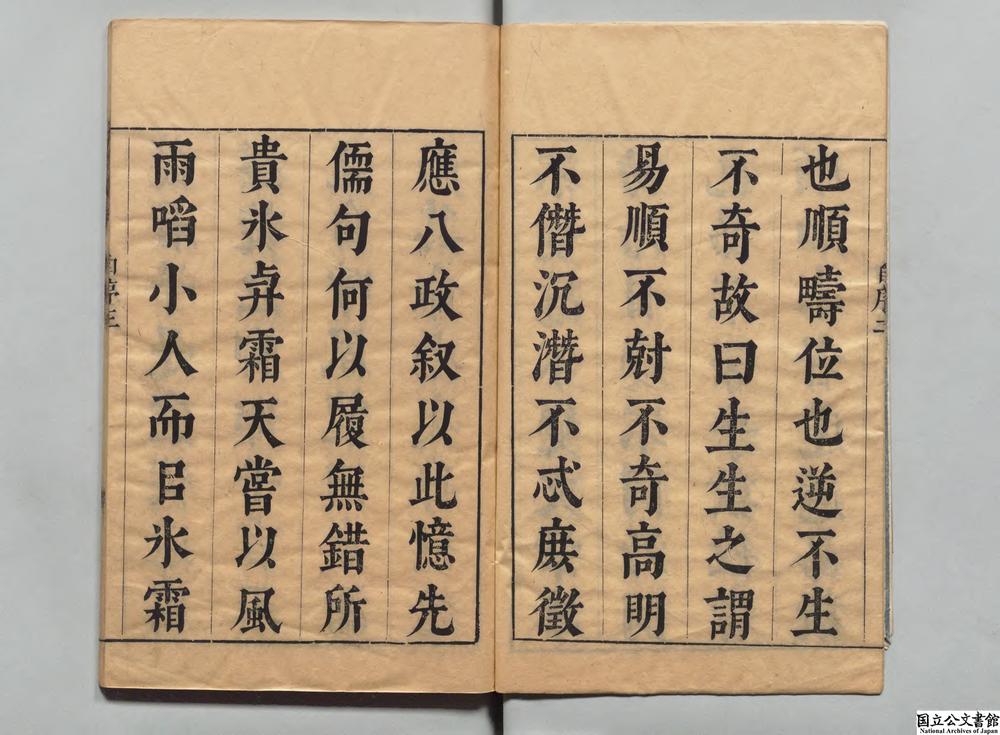 也順疇位也逆不生
不奇故曰生生之謂
易順不尅不奇高明
不僭沉潛不忒庶徵
應八政叙以此憶先
儒句何以履無錯所
貴氷弆霜天嘗以風
雨㗖小人而㠯氷霜
序三
国立公文書館
National Archives of Japan